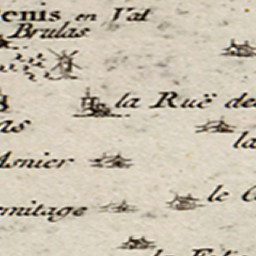 enis en Val
Brulas
la Ruë de
as
la
Asnier
le
mitage
la